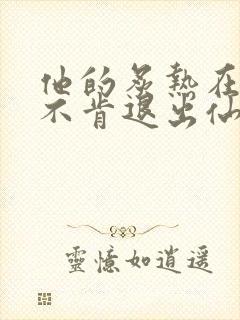 他的炙熱在
不肯退出仙
靈憶如逍遥